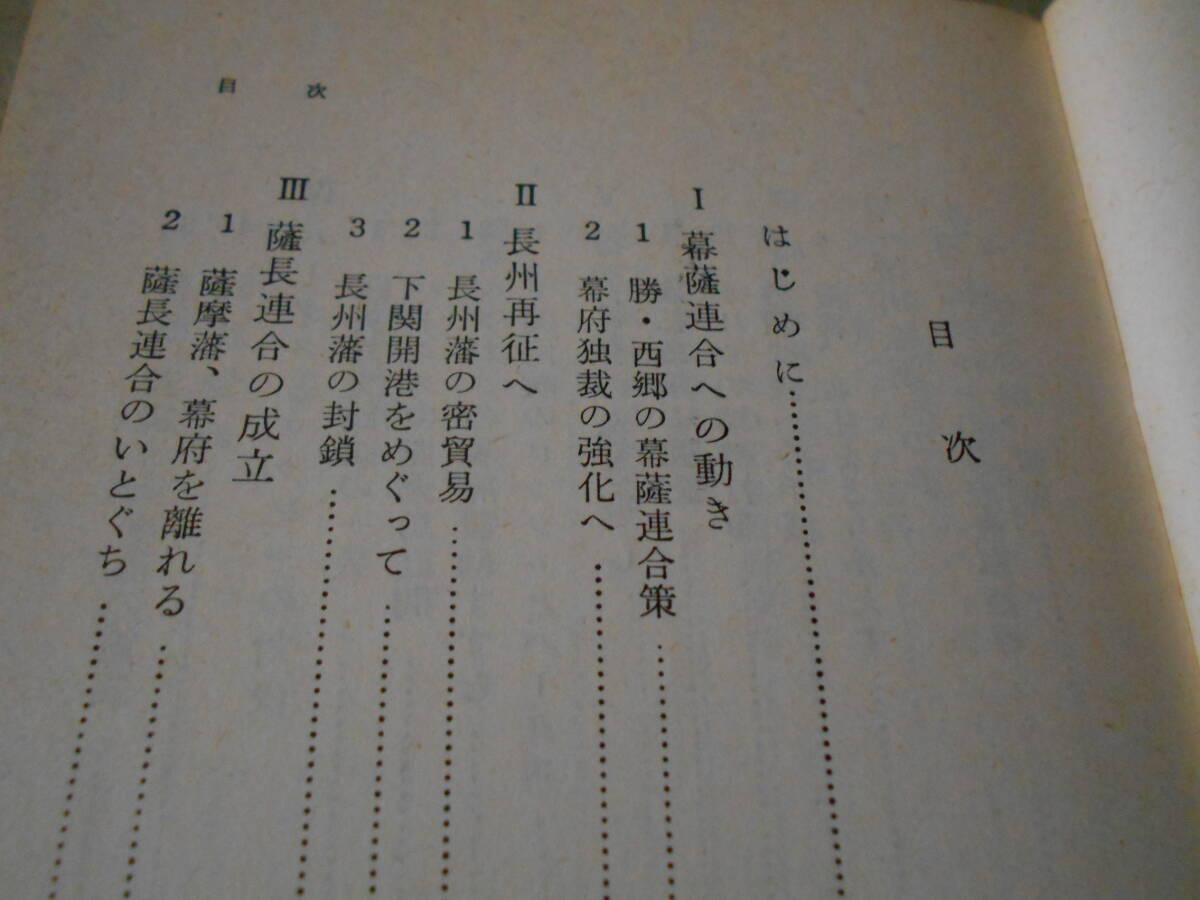 目次
はじめに……………………
I 幕薩連合への動き
1 勝・西郷の幕薩連合策……………………
2 幕府独裁の強化へ……………………
II 長州再征へ
1 長州藩の密貿易……………………
2 下関開港をめぐって……………………
3 長州藩の封鎖……………………
III 薩長連合の成立
1 薩摩藩、幕府を離れる……………………
2 薩長連合のいとぐち……………………
目次